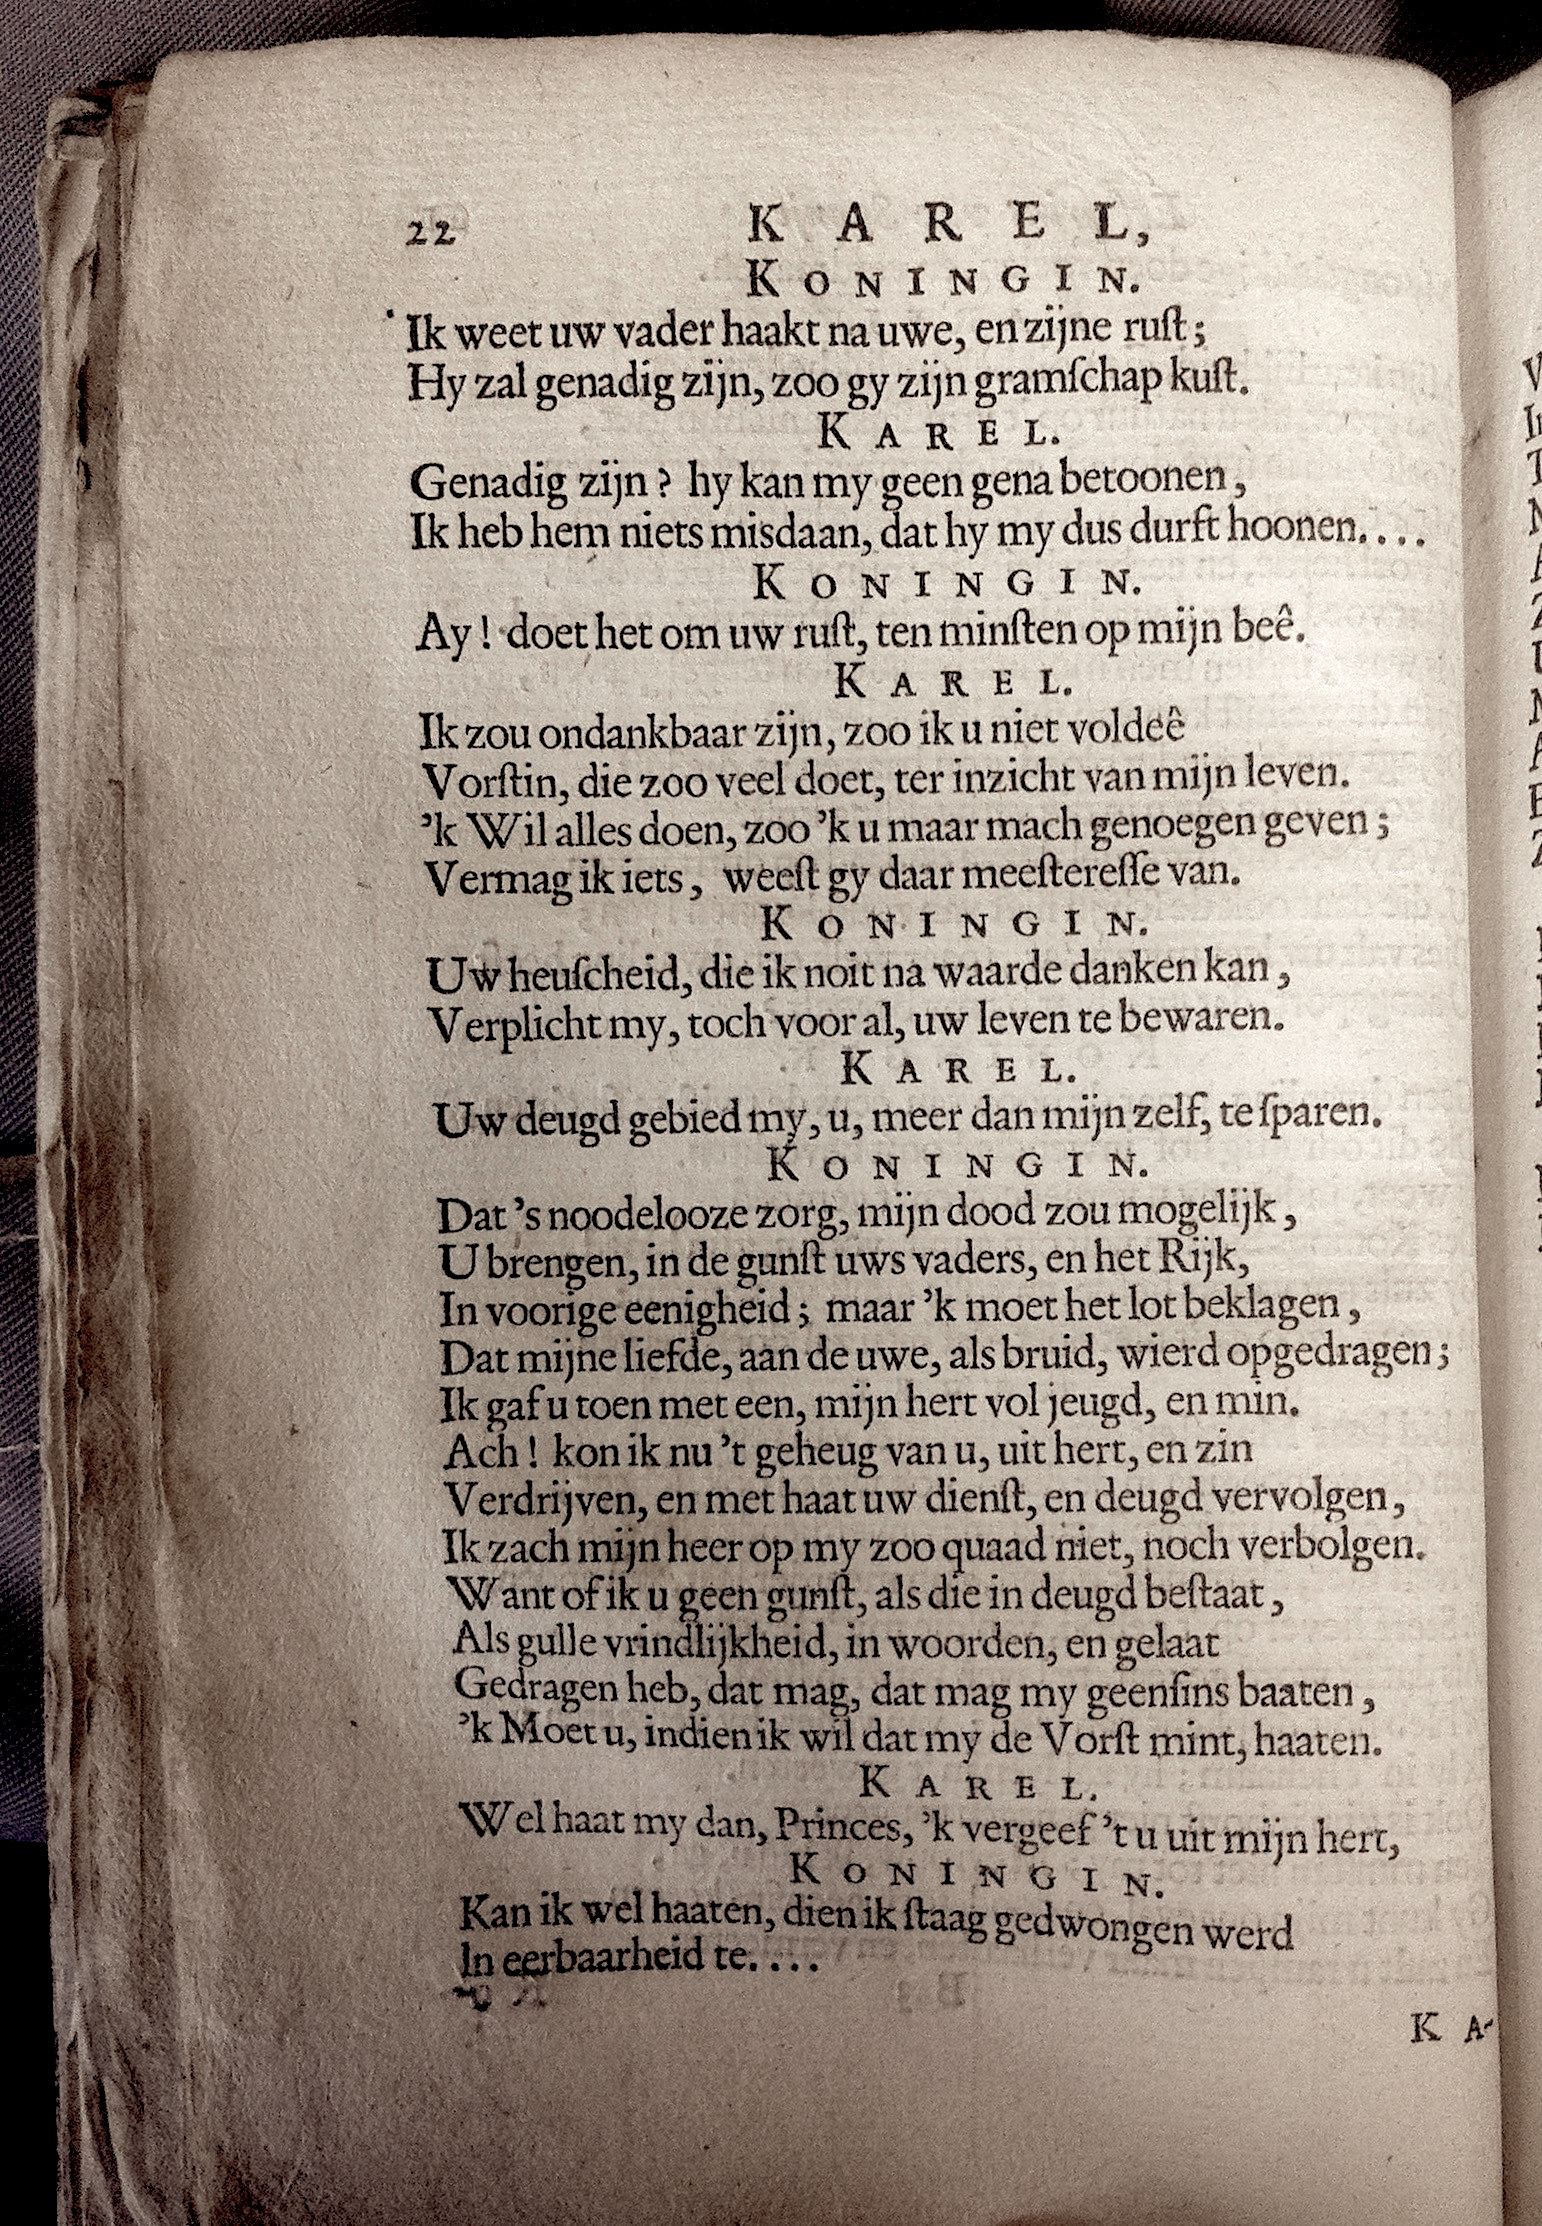 22 KAREL,
KONINGIN.
Ik weet uw vader haakt na uwe, en zijne ruſt;
Hy zal genadig zijn, zoo gy zijn gramſchap kuſt.
KAREL.
Genadig zijn? hy kan my geen gena betoonen,
Ik heb hem niets misdaan, dat hy my dus durft hoonen....
KONINGIN.
Ay! doet het om uw ruſt, ten minſten op mijn beê.
KAREL.
Ik zou ondankbaar zijn, zoo ik u niet voldeê
Vorſtin, die zoo veel doet, ter inzicht van mijn leven.
’k Wil alles doen, zoo ’k u maar mach genoegen geven;
Vermag ik iets, weeſt gy daar meeſtereſſe van.
KONINGIN.
Uw heuſcheid, die ik noit na waarde danken kan,
Verplicht my, toch voor al, uw leven te bewaren.
KAREL.
Uw deugd gebied my, u, meer dan mijn zelf, te ſparen.
KONINGIN.
Dat ’s noodelooze zorg, mijn dood zou mogelijk,
U brengen, in de gunſt uws vaders, en het Rijk,
In voorige eenigheid; maar ’k moet het lot beklagen,
Dat mijne liefde, aan de uwe, als bruid, wierd opgedragen;
Ik gaf u toen met een, mijn hert vol jeugd, en min.
Ach! kon ik nu ’t geheug van u, uit hert, en zin
Verdrijven, en met haat uw dienſt, en deugd vervolgen,
Ik zach mijn heer op my zoo quaad niet, noch verbolgen.
Want of ik u geen gunſt, als die in deugd beſtaat,
Als gulle vrindlijkheid, in woorden, en gelaat
Gedragen heb, dat mag, dat mag my geenſins baaten,
’k Moet u, indien ik wil dat my de Vorſt mint, haaten.
KAREL.
Wel haat my dan, Princes, ’k vergeef ’t u uit mijn hert,
KONINGIN.
Kan ik wel haaten, dien ik ſtaag gedwongen werd
In eerbaarheid te....
KA-